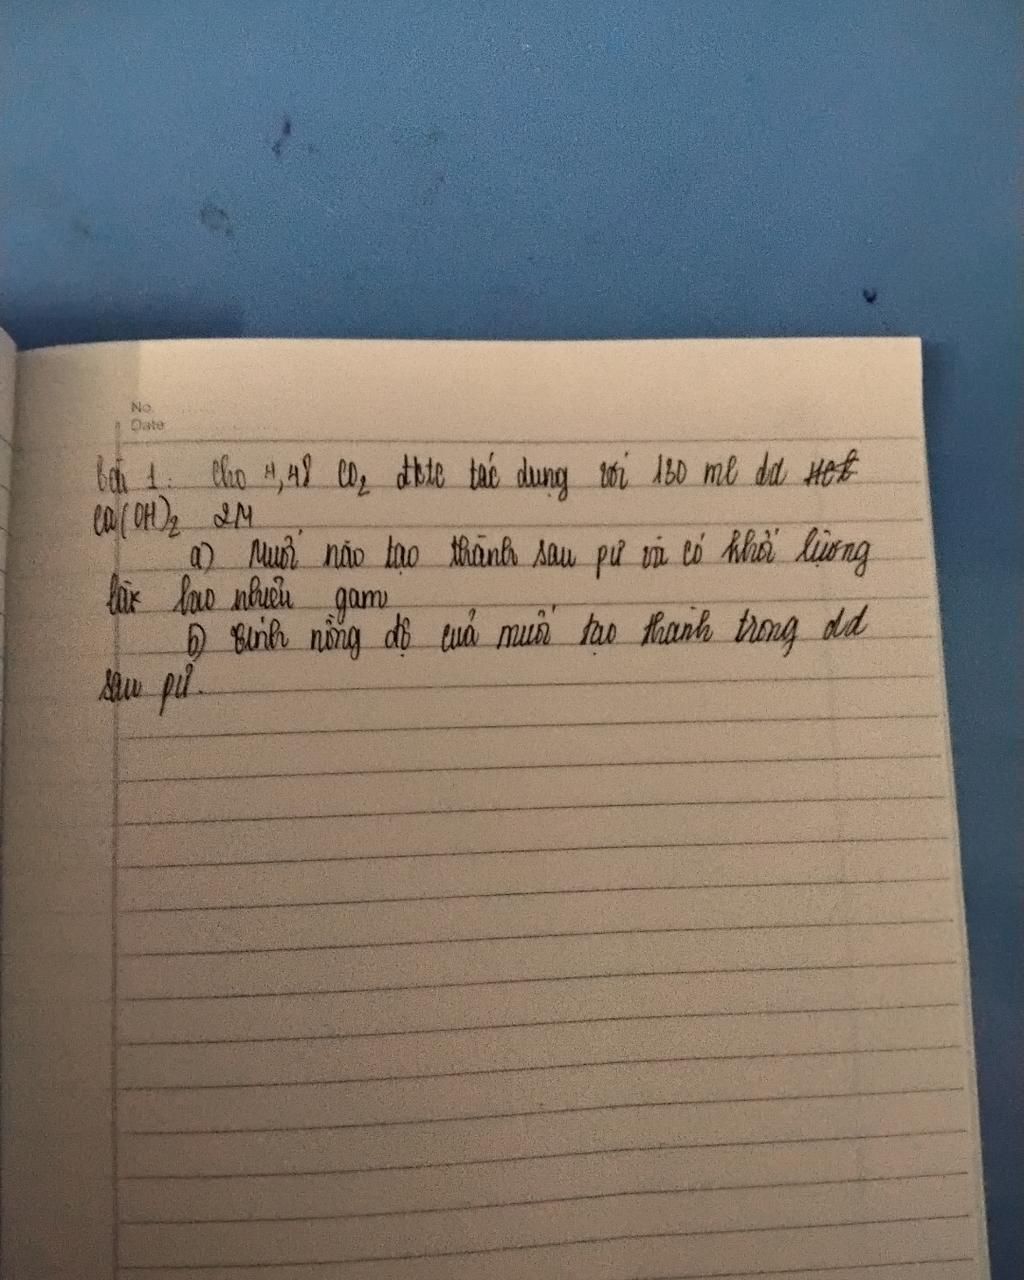 No.
Date
Bài 1: Cho 4,48 CO2 đktc tác dụng với 150 ml dd
Ca(OH)2 2M
a) Muối nào tạo thành sau pư và có khối lượng
là bao nhiêu gam
b) tính nồng độ của muối tạo thành trong dd
sau pư.